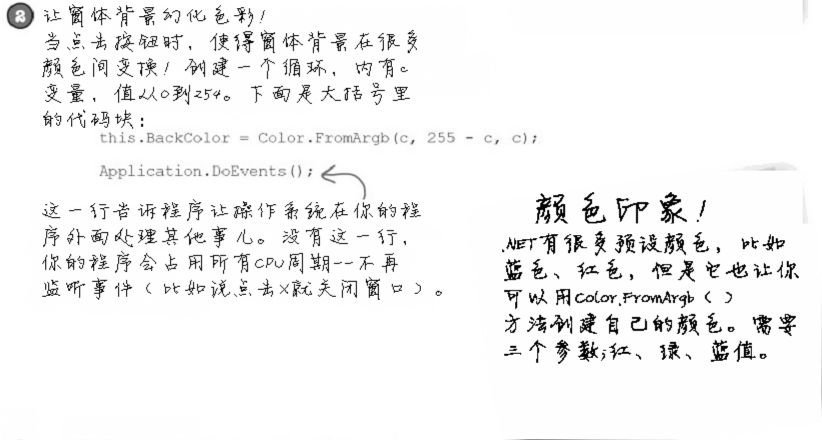 2 让窗体背景幻化色彩！
当点击按钮时，使得窗体背景在很多
颜色间变换！创建一个循环，内有c
变量，值从0到254。下面是大括号里
的代码块：
this.BackColor = Color.FromArgb(c, 255 - c, c);
Application.DoEvents();
这一行告诉程序让操作系统在你的程
序外面处理其他事儿。没有这一行，
你的程序会占用所有CPU周期--不再
监听事件（比如说点击X就关闭窗口）。
颜色印象！
.NET有很多预设颜色，比如
蓝色、红色，但是它也让你
可以用Color.FromArgb（）
方法创建自己的颜色。需要
三个参数;红、绿、蓝值。